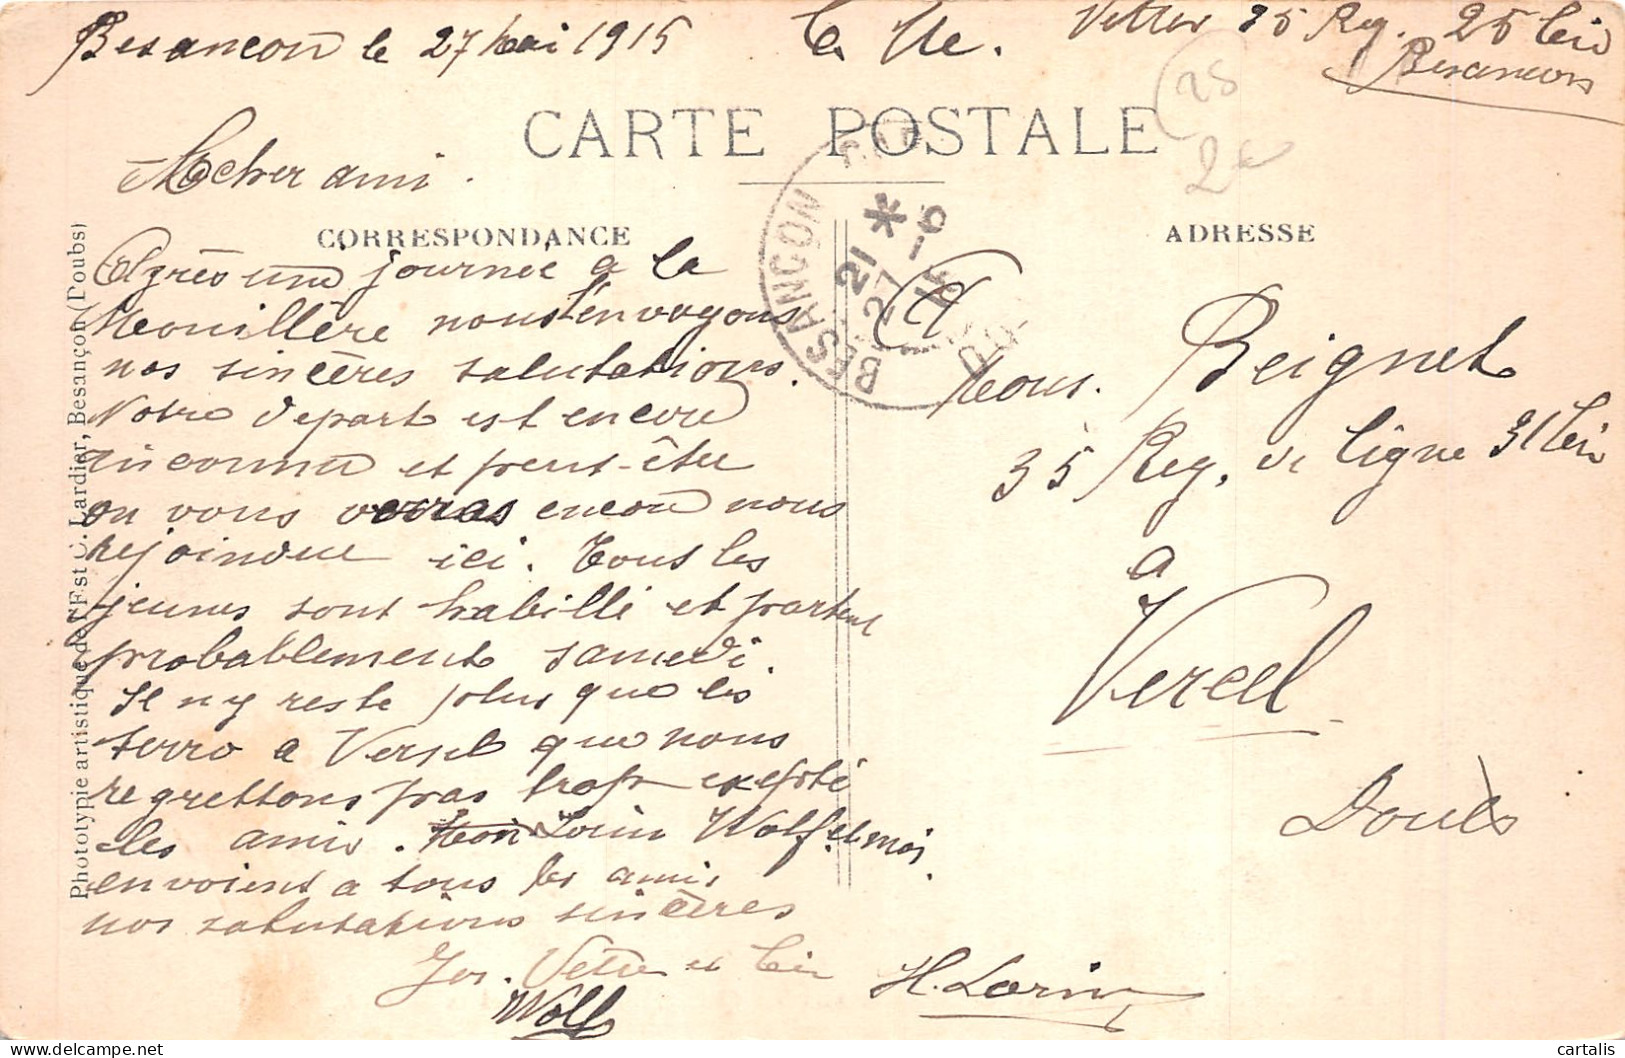 Besancon le 27 Mai 1915
Vetter 35 Reg. 25 Cie
Besancon
25
2e
CARTE POSTALE
Mocher ami.
CORRESPONDANCE
ADRESSE
BESANÇON
21 *
27 -5
15
DOUBS
Après une journeé a la
Mouillère nous t'envoyons
nos sincères salutations.
Notre depart est encore
inconnu et peut-être
on vous verras encore nous
rejoindre ici. Tous les
jeunes sont habillé et partent
probablement samedi.
Il n'y reste plus que les
a Versel que nous
regrettons pas trop exepté
les amis. Lorin Wolf et moi
envoient a tous les amis
nos salutations sincères
Jos. Vetter et Cie
Wolf
H. Lorin
A
Mons. Beignet
35 Reg. de ligne 31 Cie
a
Vercel
Doubs
Phototypie artistique de l'Est C. Lardier, Besançon (Doubs)
cartalis